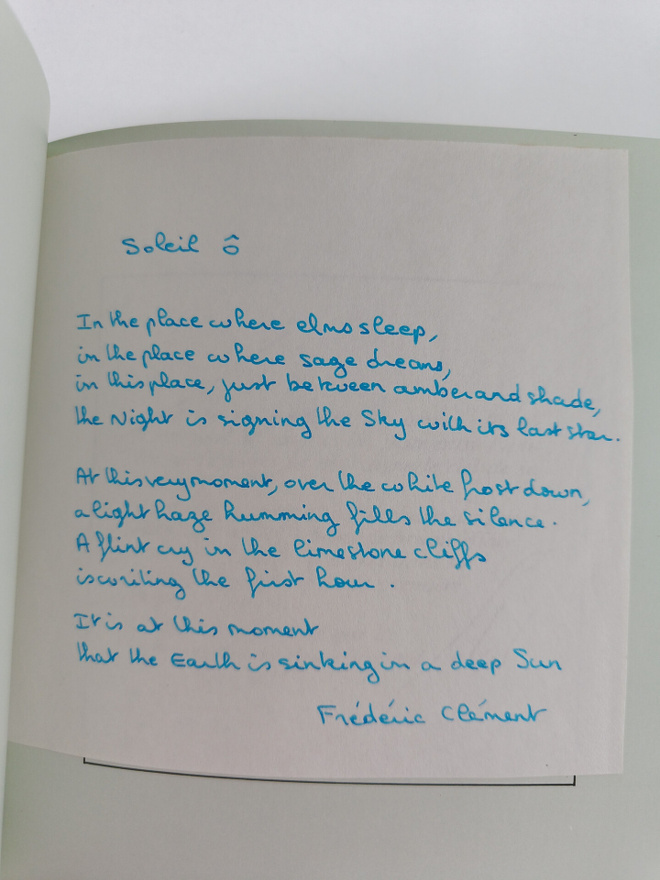 Soleil ô
In the place where elms sleep,
in the place where sage dreams,
in this place, just between amber and shade,
the Night is signing the Sky with its last star.
At this very moment, over the white frost down,
a light haze humming fills the silence.
A flint cry in the limestone cliffs
is writing the first hour.
It is at this moment
that the Earth is sinking in a deep Sun
Frédéric Clément